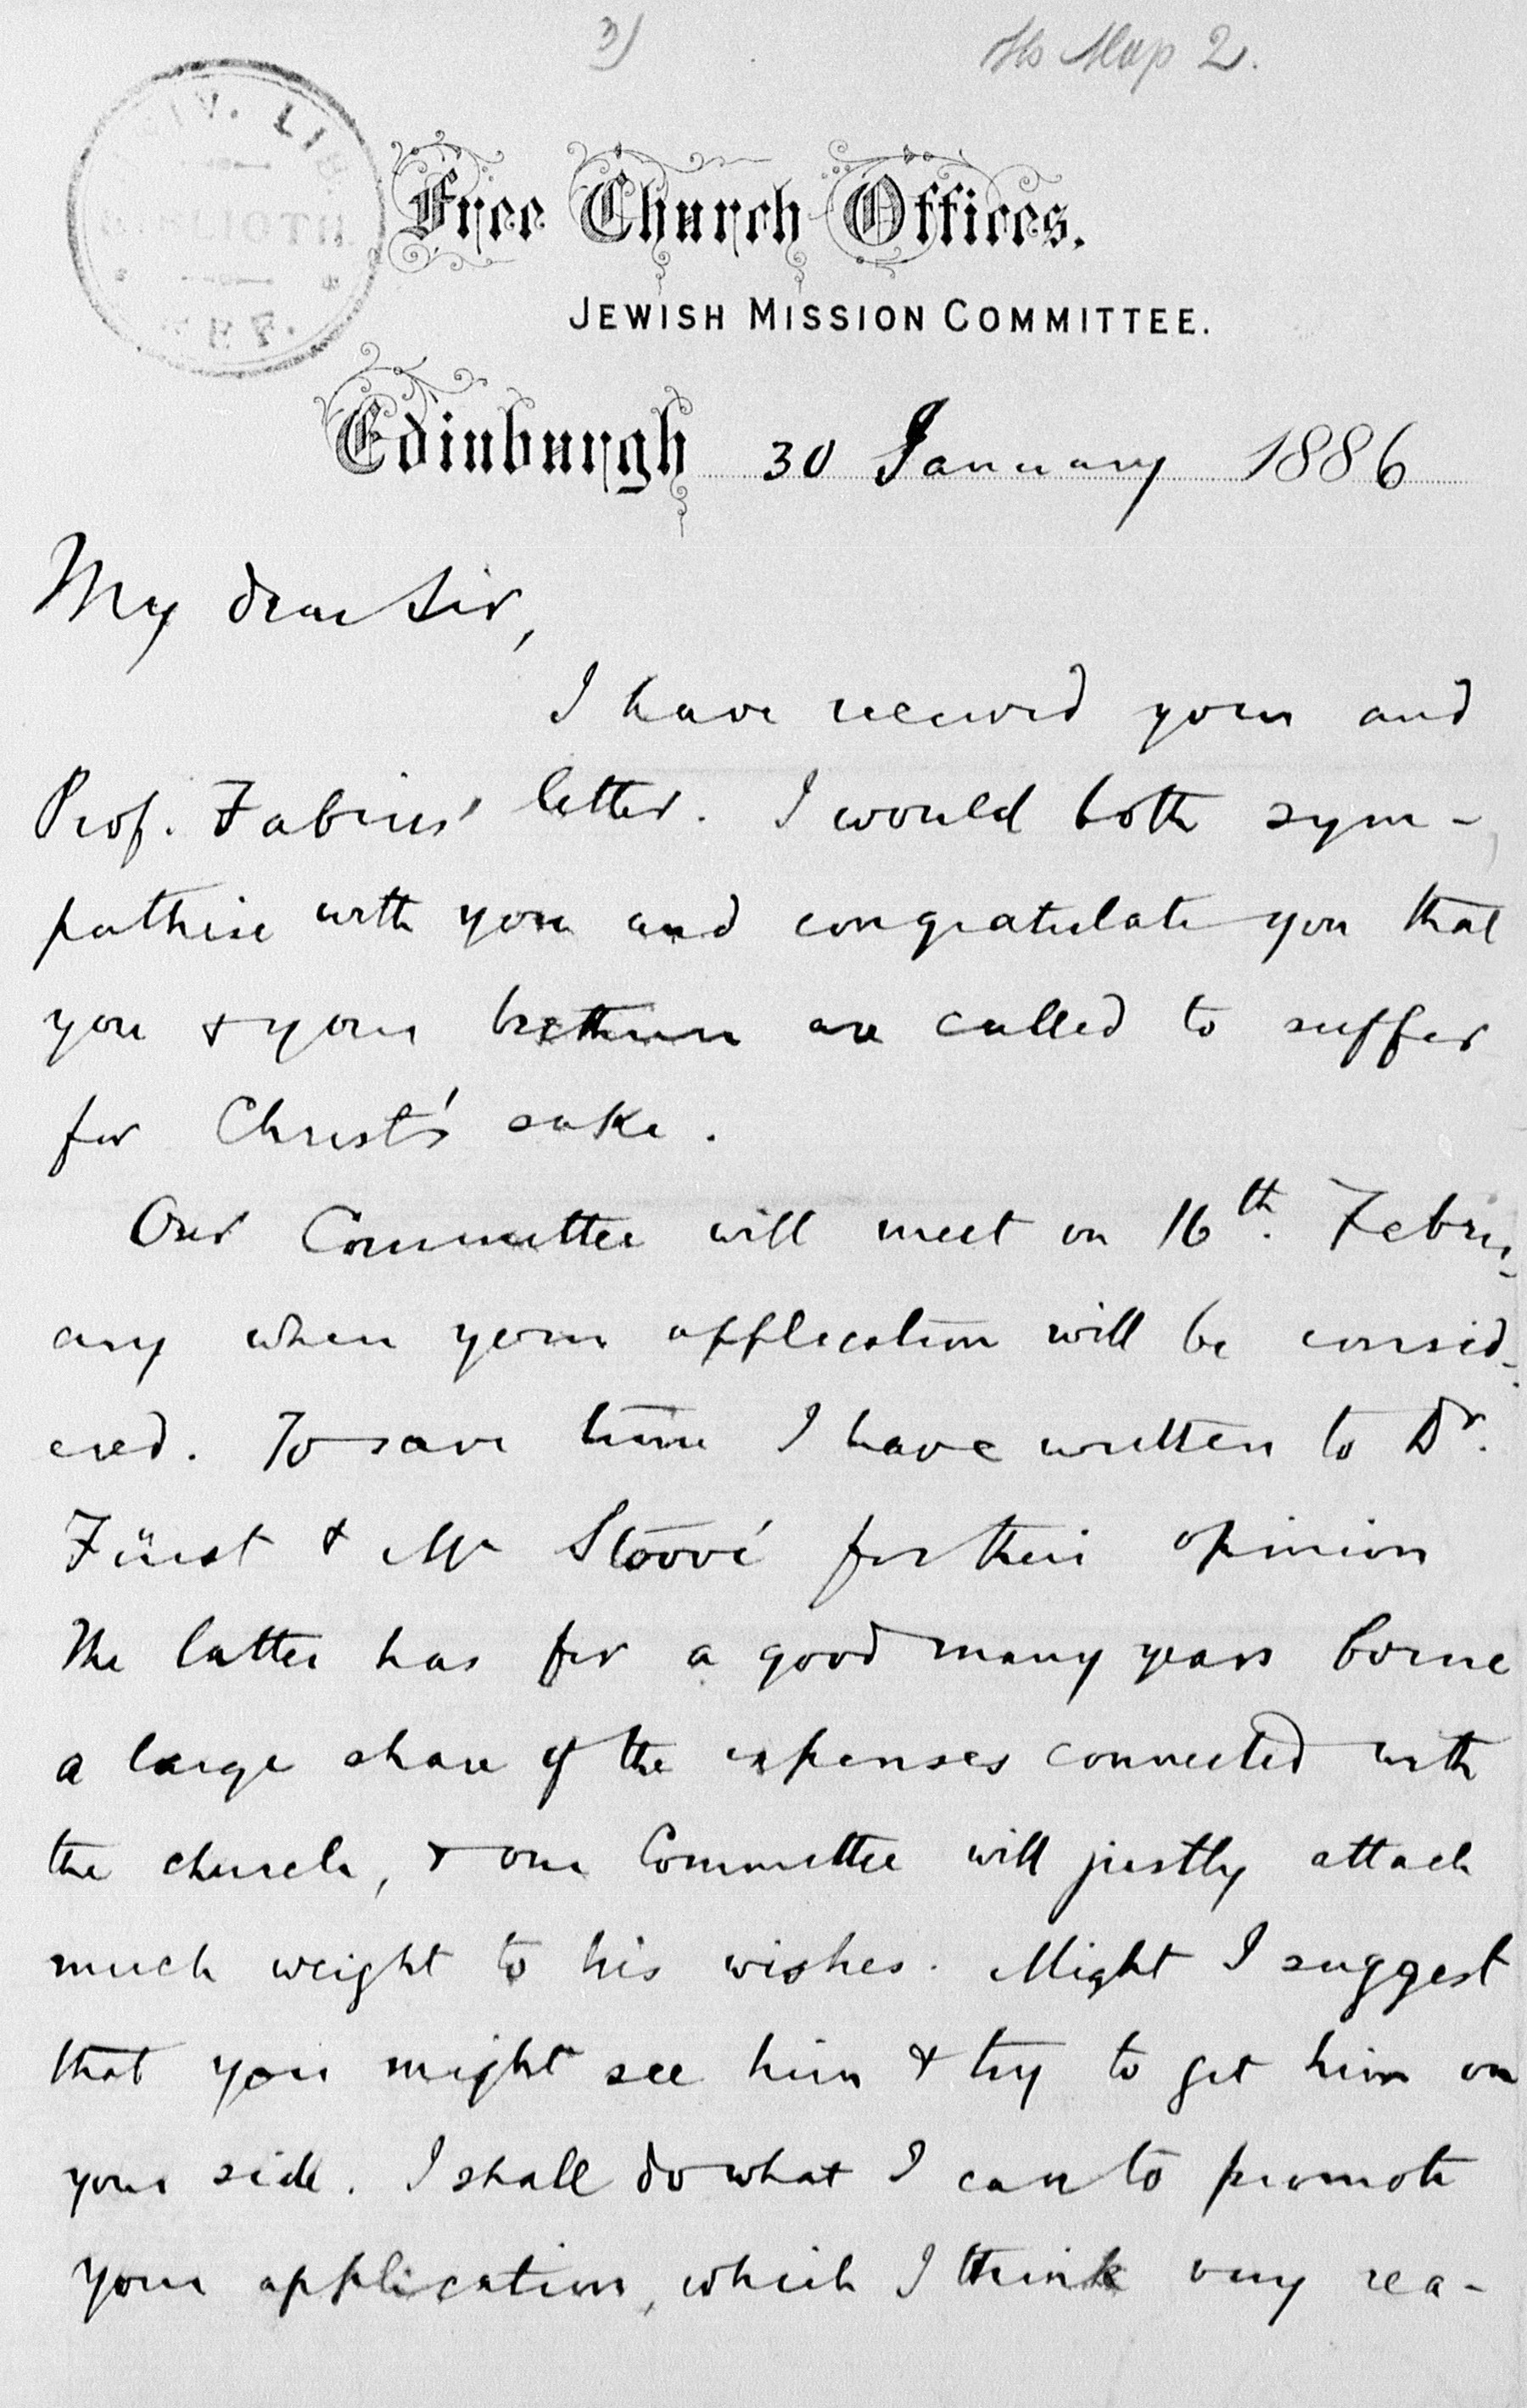 3)
Hs Map 2.
UNIV. LIB.
BIBLIOTH
REF.
Free Church Offices.
JEWISH MISSION COMMITTEE.
Edinburgh 30 January 1886
My dear Sir,
I have received your and
Prof. Fabius' letter. I would both sym-
pathise with you and congratulate you that
you & your brethren are called to suffer
for Christ's sake.
Our Committee will meet on 16th. Febru-
ary when your application will be consid-
ered. To save time I have written to Dr.
Fürst & Mr Stoové for their opinion
The latter has for a good many years borne
a large share of the expenses connected with
the church, & our Committee will justly attach
much weight to his wishes. Might I suggest
that you might see him & try to get him on
your side. I shall do what I can to promote
your application, which I think very rea-